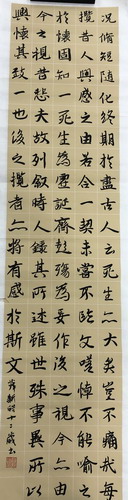 況脩短随化終期於盡古人云死生亦大矣豈不痛哉每
攬昔人興感之由若合一契未嘗不臨文嗟悼不能喻之
於懷固知一死生為虛誕齊彭殤為妄作後之視今亦由
今之視昔悲夫故列敘時人録其所述雖世殊事異所以
興懷其致一也後之攬者亦將有感於斯文 十三歲書